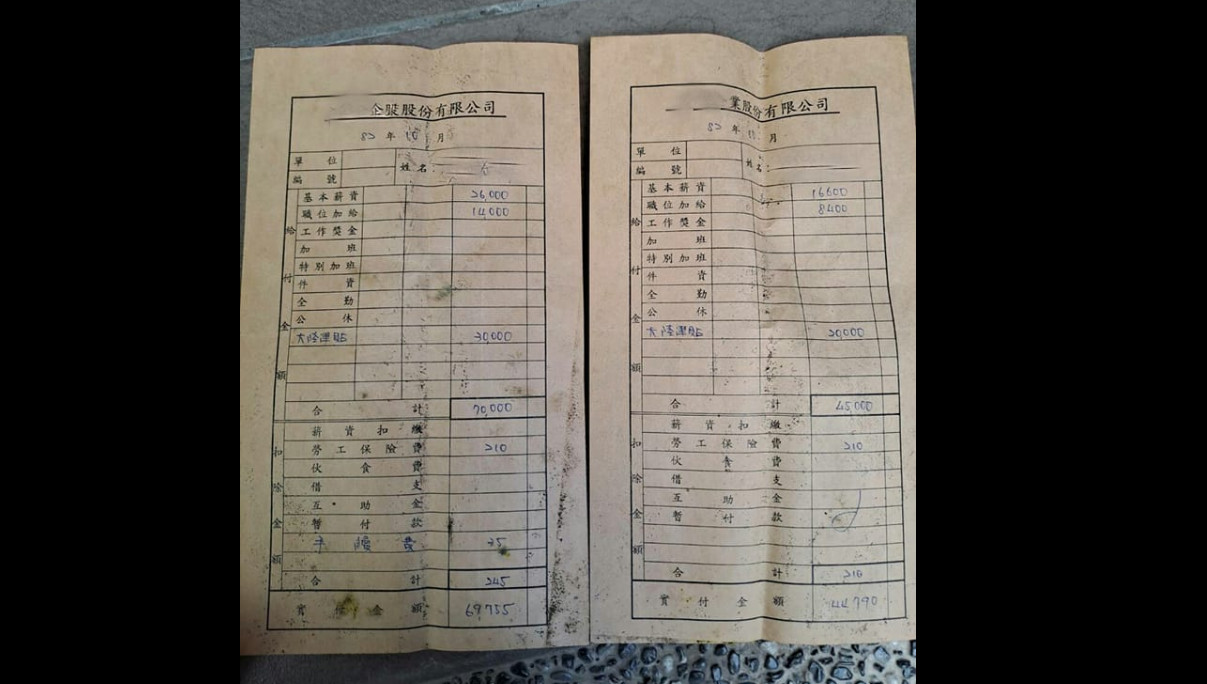 企業股份有限公司
82 年 10 月
單位
編號
姓名:
給付金額
基本薪資 26,000
職位加給 14,000
工作獎金
加班
特別加班
件資
全勤
公休
大陸津貼 30,000
合計 70,000
扣除金額
薪資扣繳
勞工保險費 210
伙食費
借支
互助金
暫付款
手續費 35
合計 245
實付金額 69,755
業股份有限公司
82 年 10 月
單位
編號
姓名:
給付金額
基本薪資 16600
職位加給 8400
工作獎金
加班
特別加班
件資
全勤
公休
大陸津貼 20,000
合計 45,000
扣除金額
薪資扣繳
勞工保險費 210
伙食費
借支
互助金
暫付款
合計 210
實付金額 44,790